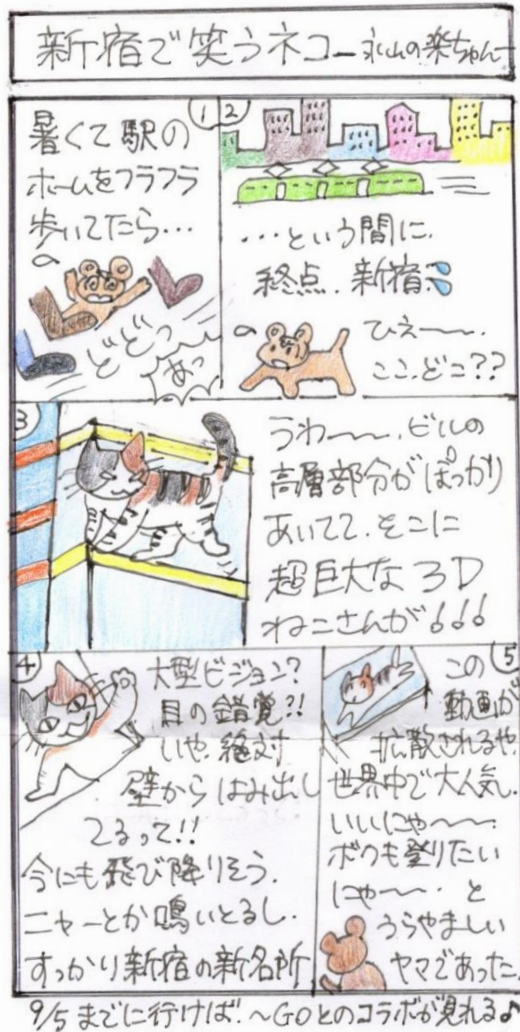 新宿で笑うネコー永山の楽ちゃんー
1
暑くて駅の
ホームをフラフラ
歩いてたら…
どどっ
あっ
2
…という間に、
終点、新宿
ひえ〜〜、
ここ、どこ??
3
うわ〜〜、ビルの
高層部分がぽっかり
あいてて、そこに
超巨大な3D
ねこさんが!!!
4
大型ビジョン?
目の錯覚?!
いや、絶対
壁からはみ出し
てるって!!
今にも飛び降りそう。
ニャーとか鳴いとるし。
すっかり新宿の新名所
5
この
動画が
拡散されるや、
世界中で大人気。
いいにゃ〜〜。
ボクも登りたい
にゃ〜〜。と
うらやましい
ヤマであった。
9/5までに行けば、〜GOとのコラボが見れる♪